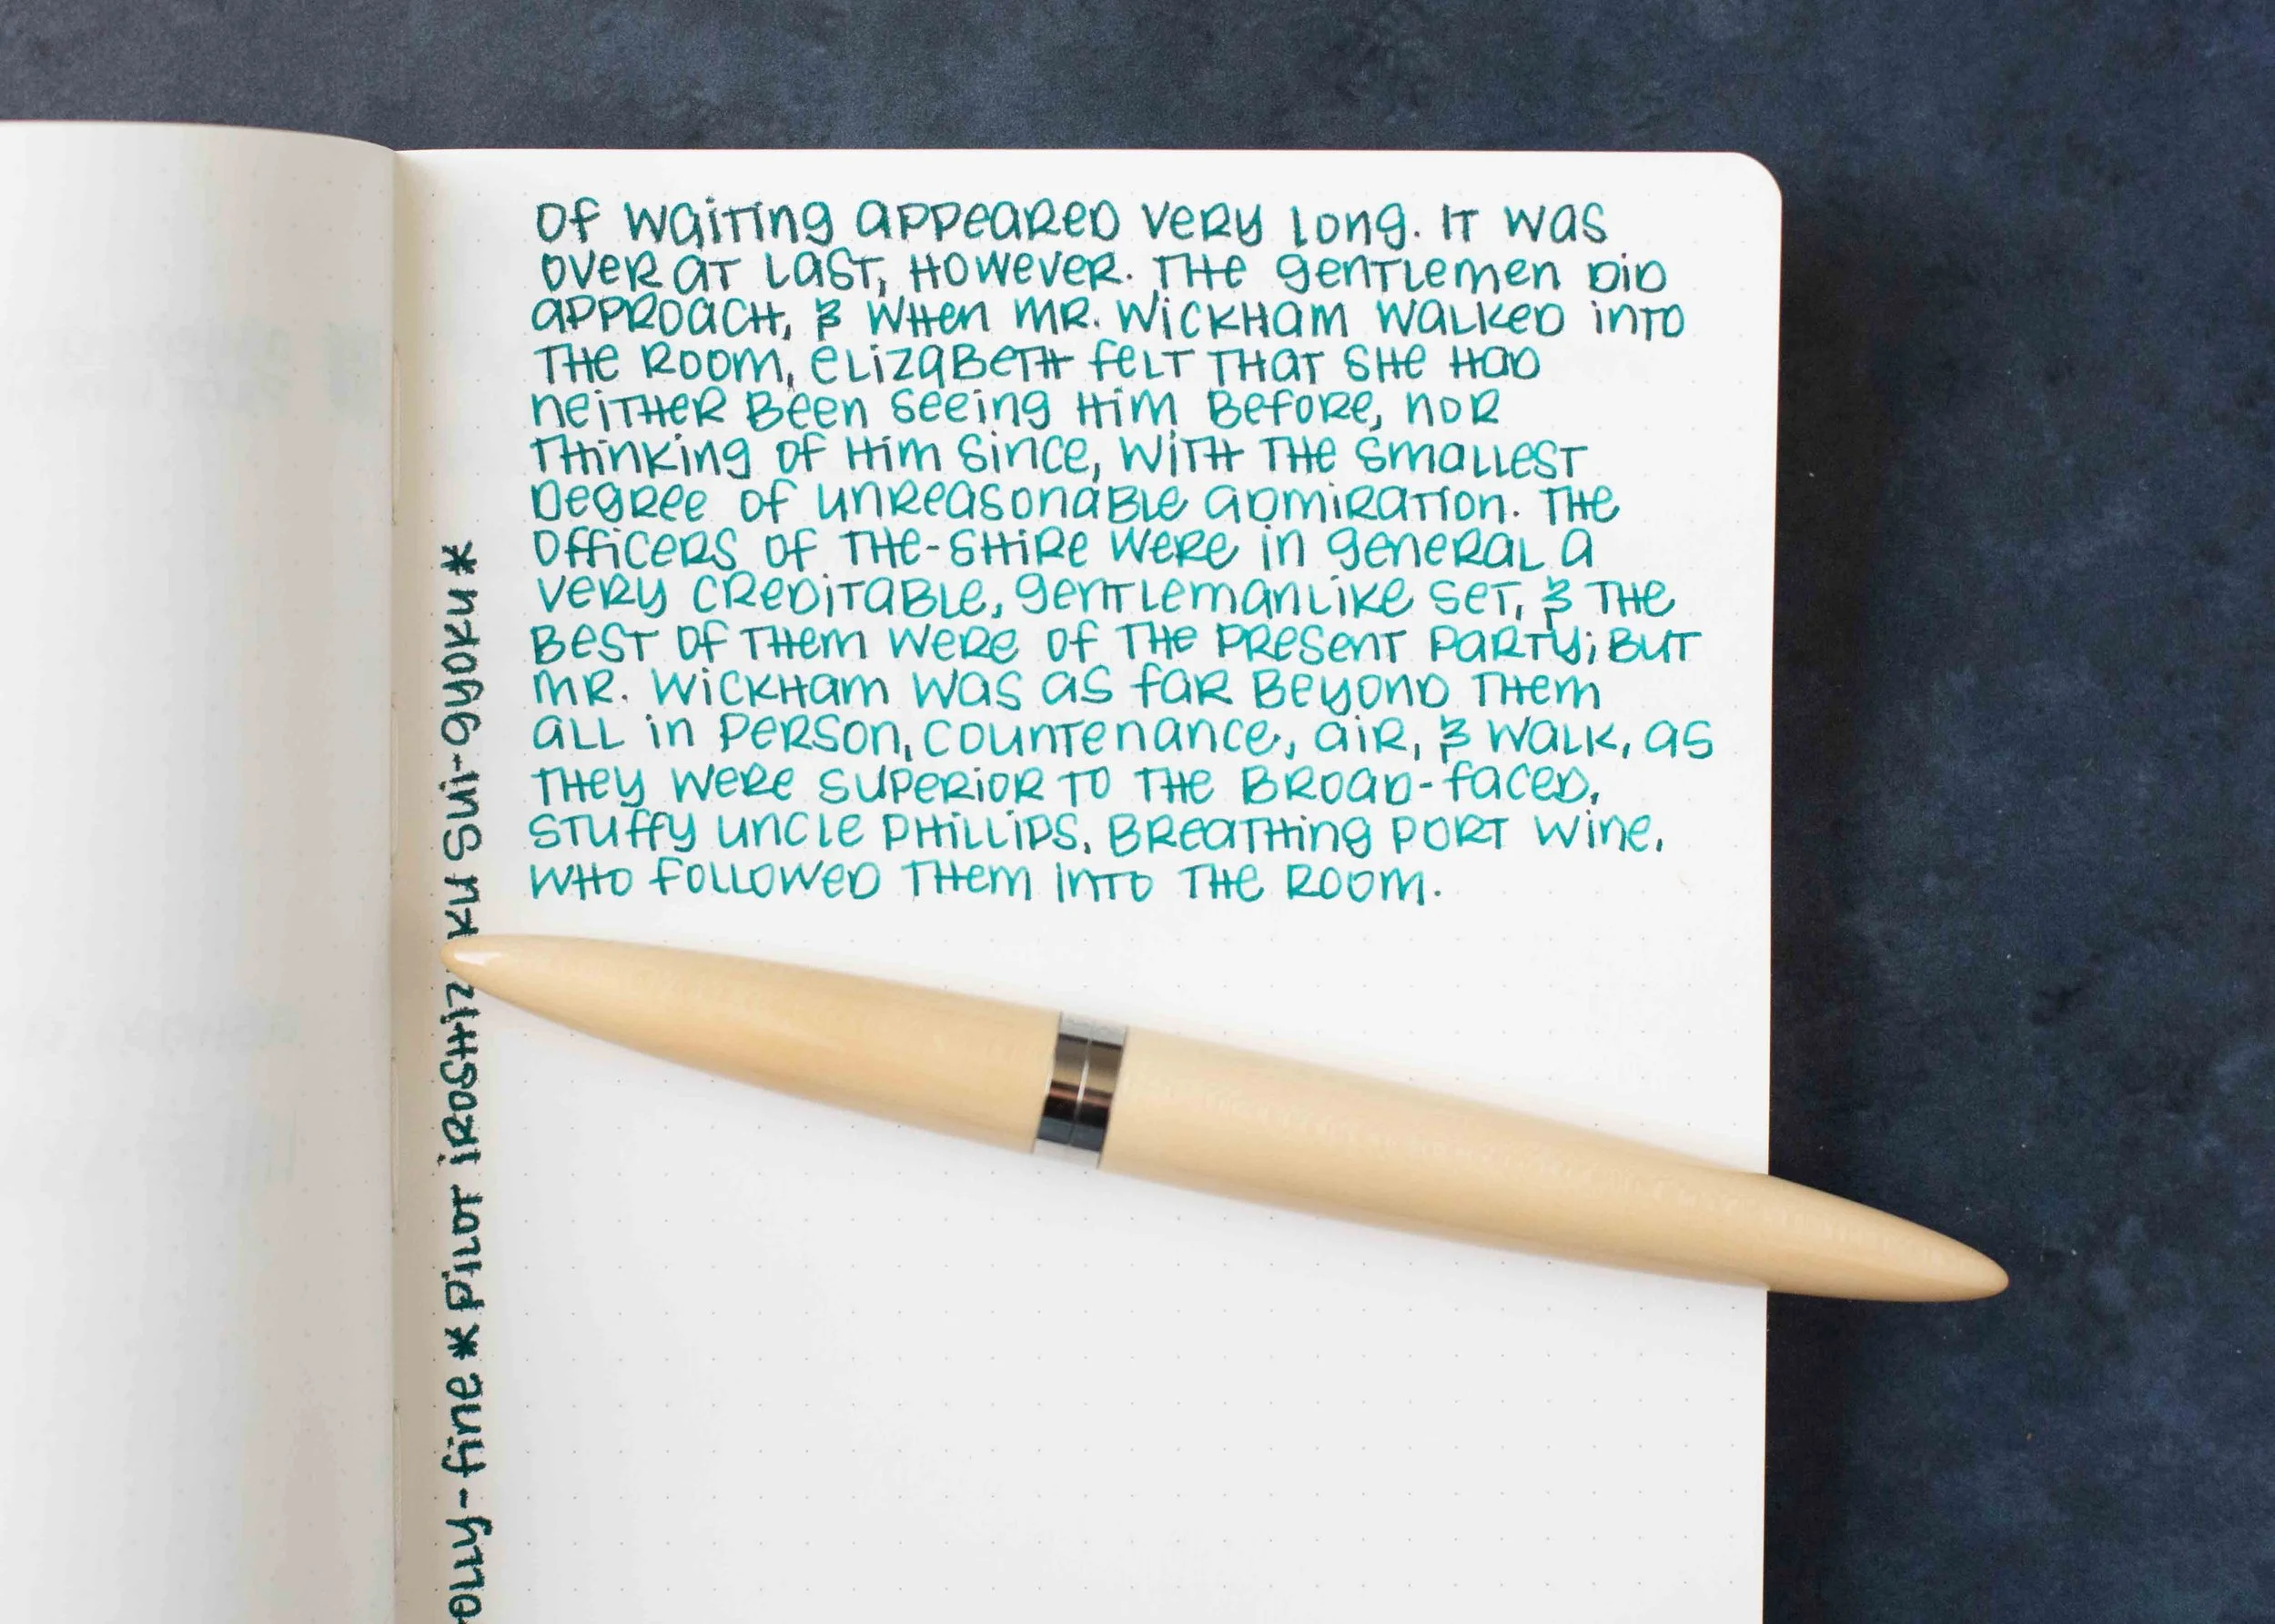 of waiting appeared very long. It was
over at last, however. The gentlemen did
approach, & when Mr. Wickham walked into
the room, Elizabeth felt that she had
neither been seeing him before, nor
thinking of him since, with the smallest
degree of unreasonable admiration. The
officers of the-shire were in general a
very creditable, gentlemanlike set, & the
best of them were of the present party; but
Mr. Wickham was as far beyond them
all in person, countenance, air, & walk, as
they were superior to the broad-faced,
stuffy uncle Phillips, breathing port wine,
who followed them into the room.
olly-fine * Pilot Iroshizuku Sui-gyoku *